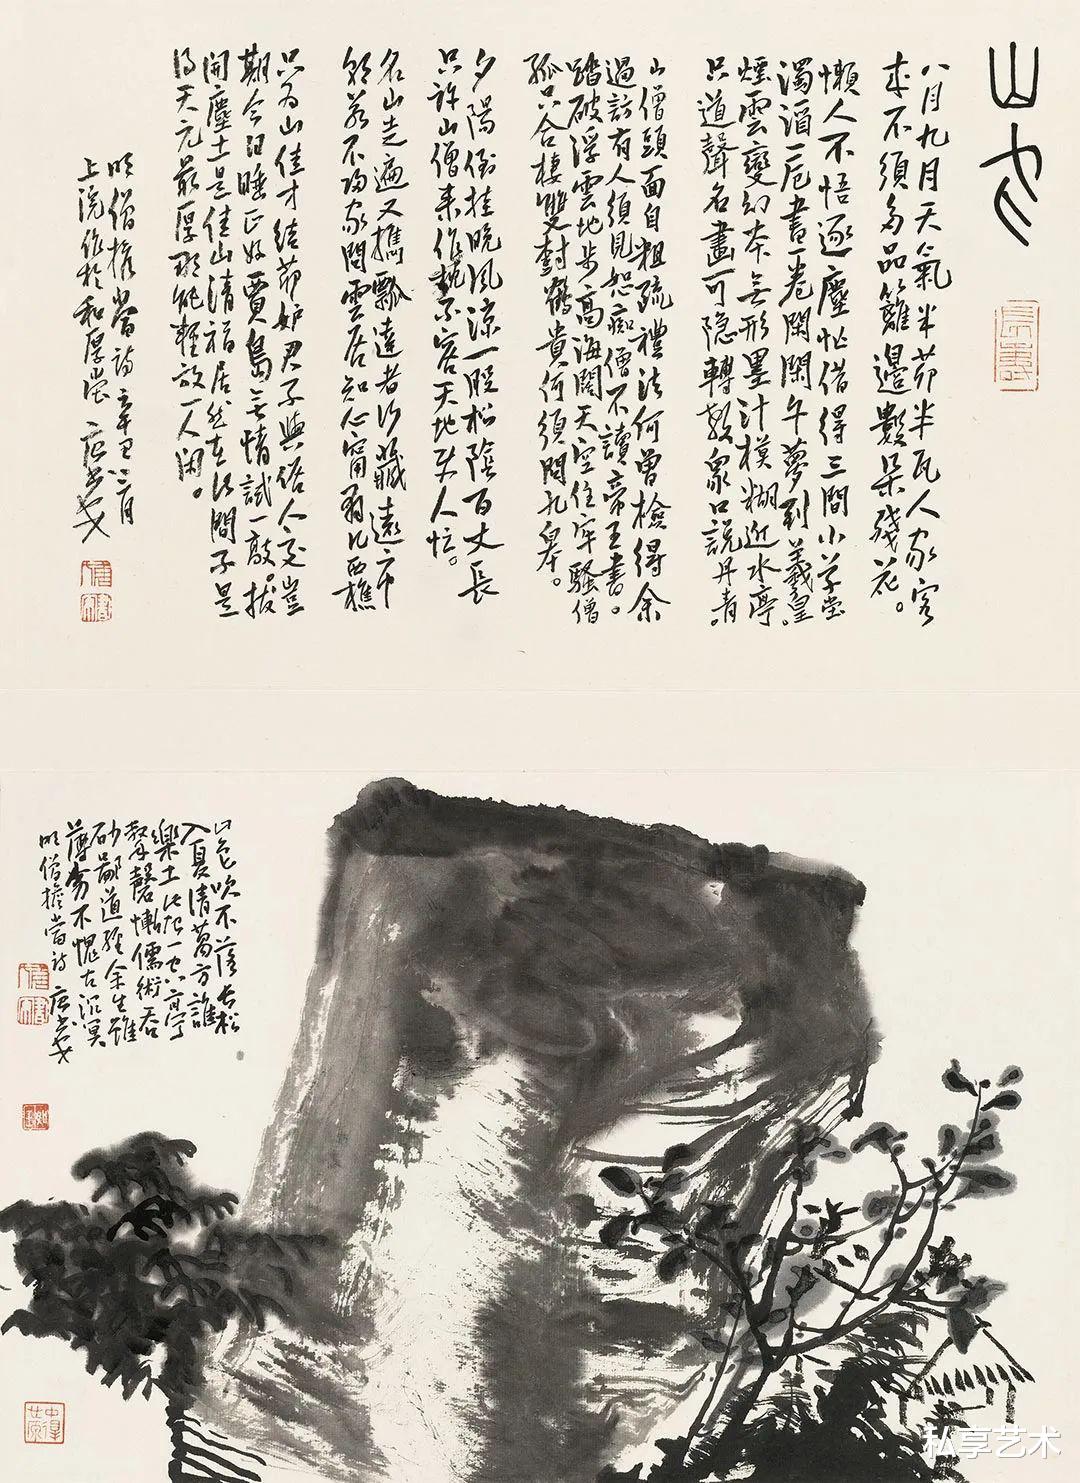 山水
八月九月天氣半茆半瓦人家客
來不須多品籬邊數朵殘花。
懶人不悟逐塵忙借得三間小草堂
濁酒一卮書一卷閑閑午夢到羲皇。
煙雲變幻本無形墨汁模糊近水亭
只道聲名畫可隐轉教衆口說丹青。
山僧頭面自粗疏禮法何曾檢得余
過訪有人須見恕癡僧不讀帝王書。
踏破浮雲地步高海闊天空住牢騷僧
孤只合棲雙樹鶴貴何須問九皋。
夕陽倒挂晚風涼一股松陰百丈長
只許山僧來作熱不容天地失人忙。
名山走遍又攜瓢達者行藏遠市
朝若不歸家問雲居知心甯爾比西樵
只為山佳才結茆妒君子與俗人交豈
期今日睡正好賈島無情試一敲拔
開塵土是佳山清福居然在此間子是
得天元最厚那能輕放一人闲。
明僧擔當詩辛丑三月
上浣作於和厚堂
山色吹不落長松
入夏清萬方誰
樂土此一亭
聲磬慚儒術吞
砂鄙道經余生雖
薄劣不愧古沉冥
明僧擔當詩
私享艺术